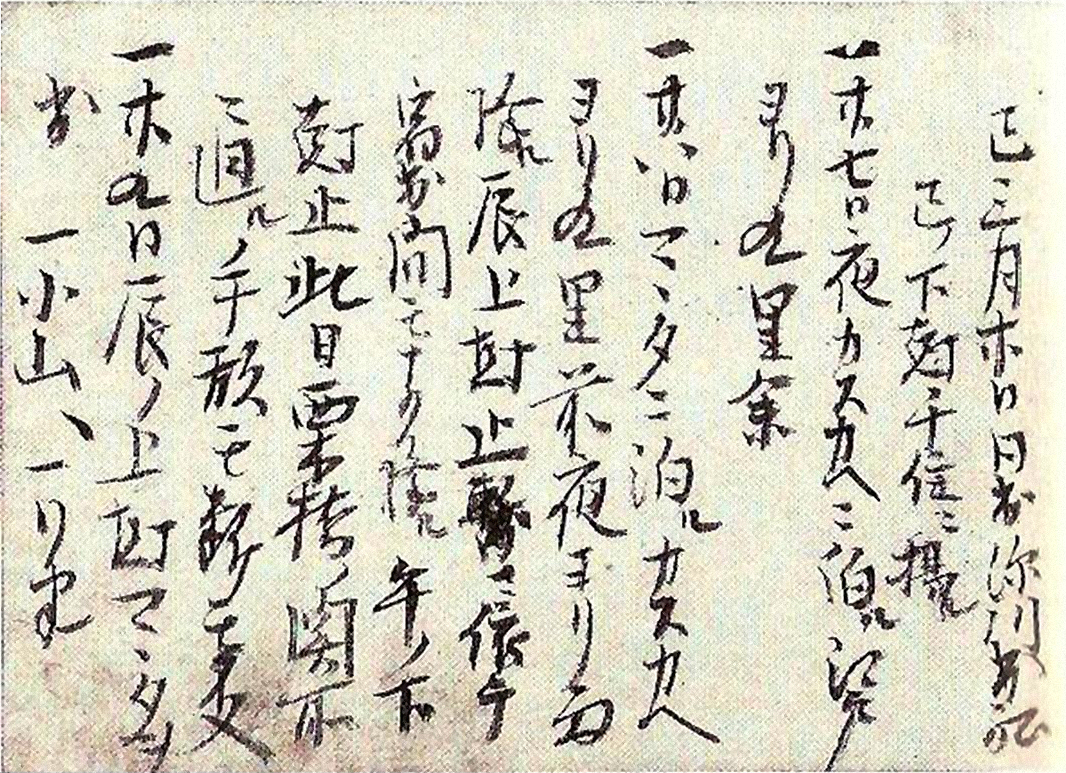 巳三月廿日日出深川出船
巳ノ下尅千住ニ揚ル
一廿七日夜カスカヘニ泊ル江戸
ヨリ九里余
一廿八日マヽタニ泊ルカスカヘ
ヨリ九里前夜ヨリ雨
降ル辰上尅止ニ依テ
宿出間モナク降ル午ノ下
尅止此日栗橋ノ関所
ニ通ル手形モ断モ不入
一廿九日辰ノ上尅マヽタヲ
出 一小山ヘ一リ半